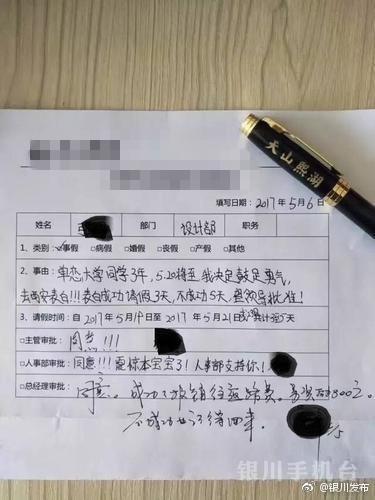 天山熙湖
填写日期：2017年5月6日
姓名 部门 设计部 职务
1、类别：☑事假 □病假 □婚假 □丧假 □产假 □其他
2、事由：单恋大学同学3年，5.20将至我决定鼓足勇气，
去西安表白!!!表白成功请假3天，不成功5天，望领导批准！
3、请假时间：自2017年5月19日至2017年5月21日 共计 5天
□主管审批：同意!!!
□人事部审批：同意!!!震惊本宝宝了！人事部支持你！
□总经理审批：同意。成功了报销往返路费。 800元。
不成功 回来。
银川手机台
@银川发布